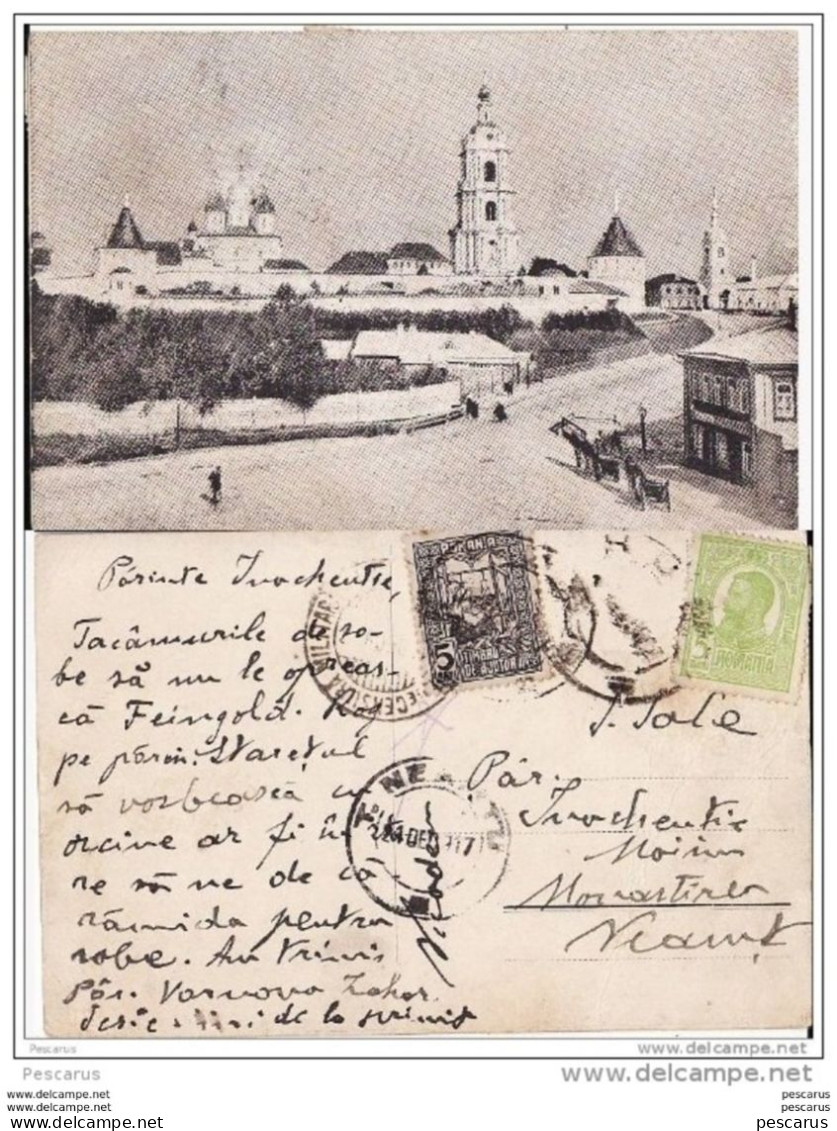 Părinte Inochentie,
Tacâmurile de so-
be să nu le opreas-
că Feingold. Rog
pe părin. Starețul
să vorbească cu
oricine ar fi în
re să ne de că-
rămida pentru
sobe. Au trimis
Păr. Varnava Zahar.
de la
5
5
ROMANIA
NEAMȚU
24 DEC 917
S. Sale
Păr.
Inochentie
Moisiu
Monastirea
Neamț
Pescarus
www.delcampe.net
Pescarus
www.delcampe.net
www.delcampe.net
www.delcampe.net
pescarus
pescarus
pescarus
pescarus